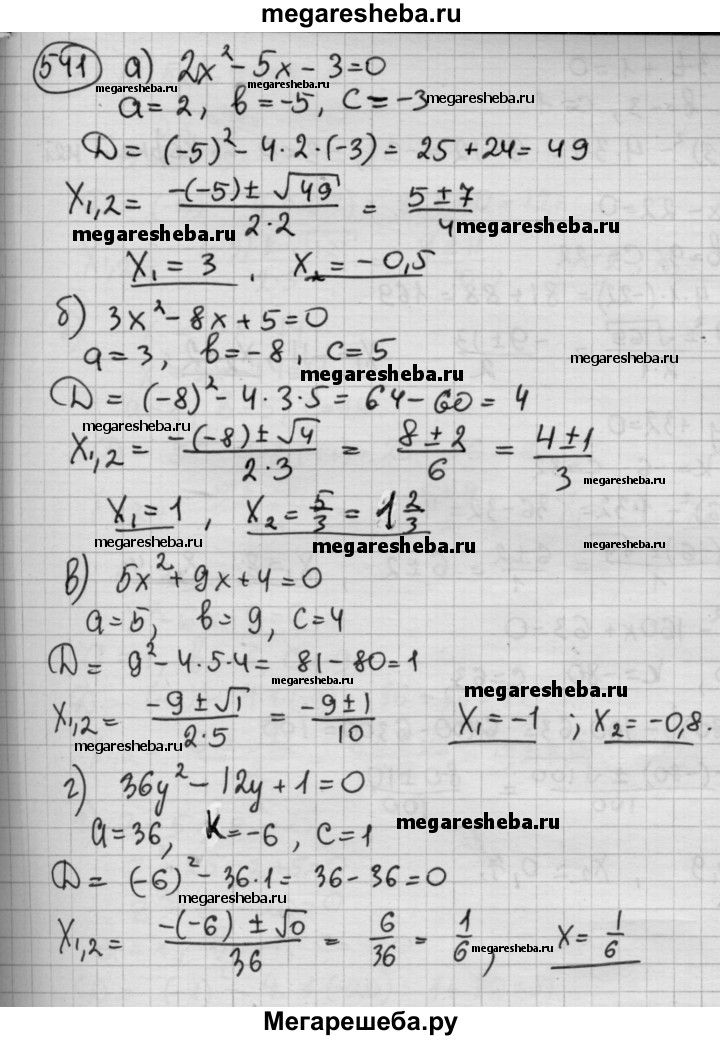 megaresheba.ru
541 а) 2x² - 5x - 3 = 0
megaresheba.ru megaresheba.ru
a = 2, в = -5, c = -3 megaresheba.ru
D = (-5)² - 4·2·(-3) = 25 + 24 = 49
X₁,₂ = (-(-5) ± √49)/(2·2) = (5 ± 7)/4
megaresheba.ru megaresheba.ru
X₁ = 3, X₂ = -0,5
б) 3x² - 8x + 5 = 0
a = 3, в = -8, c = 5 megaresheba.ru
megaresheba.ru
D = (-8)² - 4·3·5 = 64 - 60 = 4
megaresheba.ru
X₁,₂ = (-(-8) ± √4)/(2·3) = (8 ± 2)/6 = (4 ± 1)/3
megaresheba.ru
X₁ = 1, X₂ = 5/3 = 1 2/3
megaresheba.ru megaresheba.ru megaresheba.ru
в) 5x² + 9x + 4 = 0
a = 5, в = 9, c = 4
D = 9² - 4·5·4 = 81 - 80 = 1
megaresheba.ru megaresheba.ru
X₁,₂ = (-9 ± √1)/(2·5) = (-9 ± 1)/10 X₁ = -1; X₂ = -0,8.
megaresheba.ru megaresheba.ru
г) 36y² - 12y + 1 = 0
a = 36, K = -6, c = 1 megaresheba.ru
D = (-6)² - 36·1 = 36 - 36 = 0
megaresheba.ru
X₁,₂ = (-(-6) ± √0)/36 = 6/36 = 1/6, X = 1/6
megaresheba.ru megaresheba.ru
Мегарешеба.ру